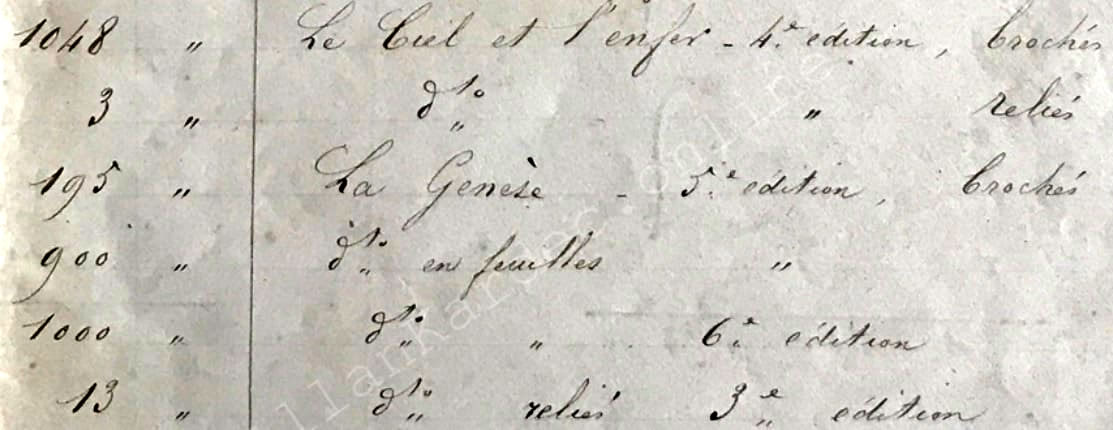 1048 " Le Ciel et l'enfer - 4.e edition, brochés
3 " dto " reliés
195 " La Genèse - 5.e edition, brochés
900 " dto en feuilles "
1000 " dto " 6.e édition
13 " dto reliés 3e édition